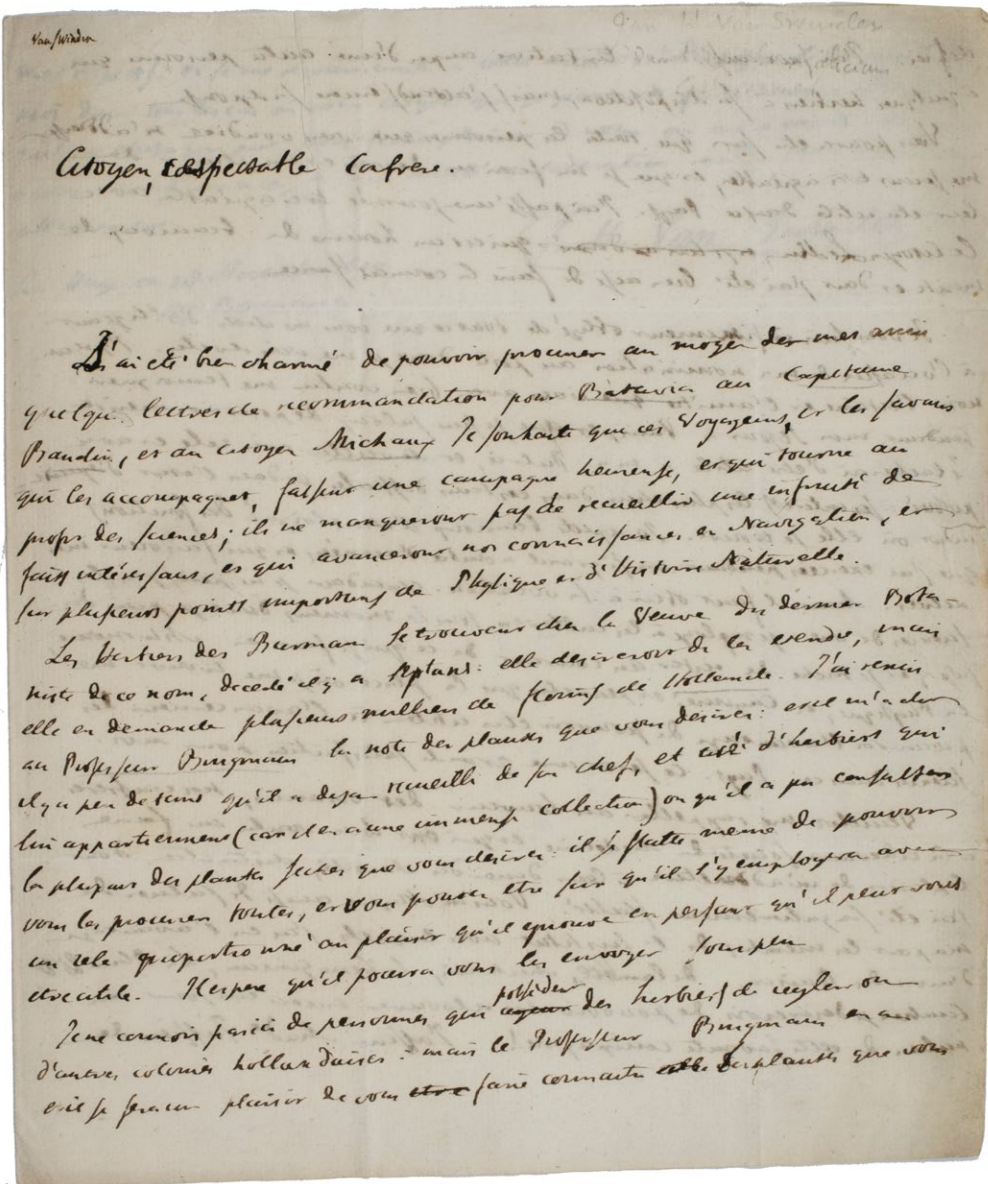 Van Swinden
Citoyen, respectable Confrere.
J'ai été bien charmé de pouvoir procurer au moyen de mes amis
quelqu. lettres de recommandation pour Batavia au Capitaine
Baudin, et au citoyen Michaux Je souhaite que ces Voyageurs, et les savans
qui les accompagnet, fassent une campagne heureuse, et qui tourne au
profit des sciences; ils ne manqueront pas de recueillir une infinité de
faits intéressans, et qui avanceront nos connaissances en Navigation, et
sur plusieurs points importans de Physique et d'Histoire Naturelle.
Les Herbiers des Burman se trouvent chez la Veuve du dernier Bota
niste de ce nom, decedé il y a sept ans: elle desireroit de les vendre, mais
elle en demande plusieurs milliers de florins de Hollande. J'ai remis
au Professeur Brugmans la note des plantes que vous desirez: et il m'a dit
il y a peu de tems qu'il a deja recueilli de son chef, et d'herbiers qui
lui appartiennent (car il en a une immense collection) ou qu'il a pu consulter
la plupart des plantes seches que vous desirez: il se flatte meme de pouvoir
vous les procurer toutes, et vous pouvez etre sur qu'il s'y employera avec
un zele proportionné au plaisir qu'il eprouve en pensant qu'il peut vous
etre utile. Il espere qu'il pourra vous les envoyer sous peu
Je ne connois pas ici de personnes qui ayent possedent des herbiers de ceylan ou
d'autres colonies hollandaises: mais le Professeur Brugmans en a
et il se fera un plaisir de vous etre faire connaitre les plantes que vous